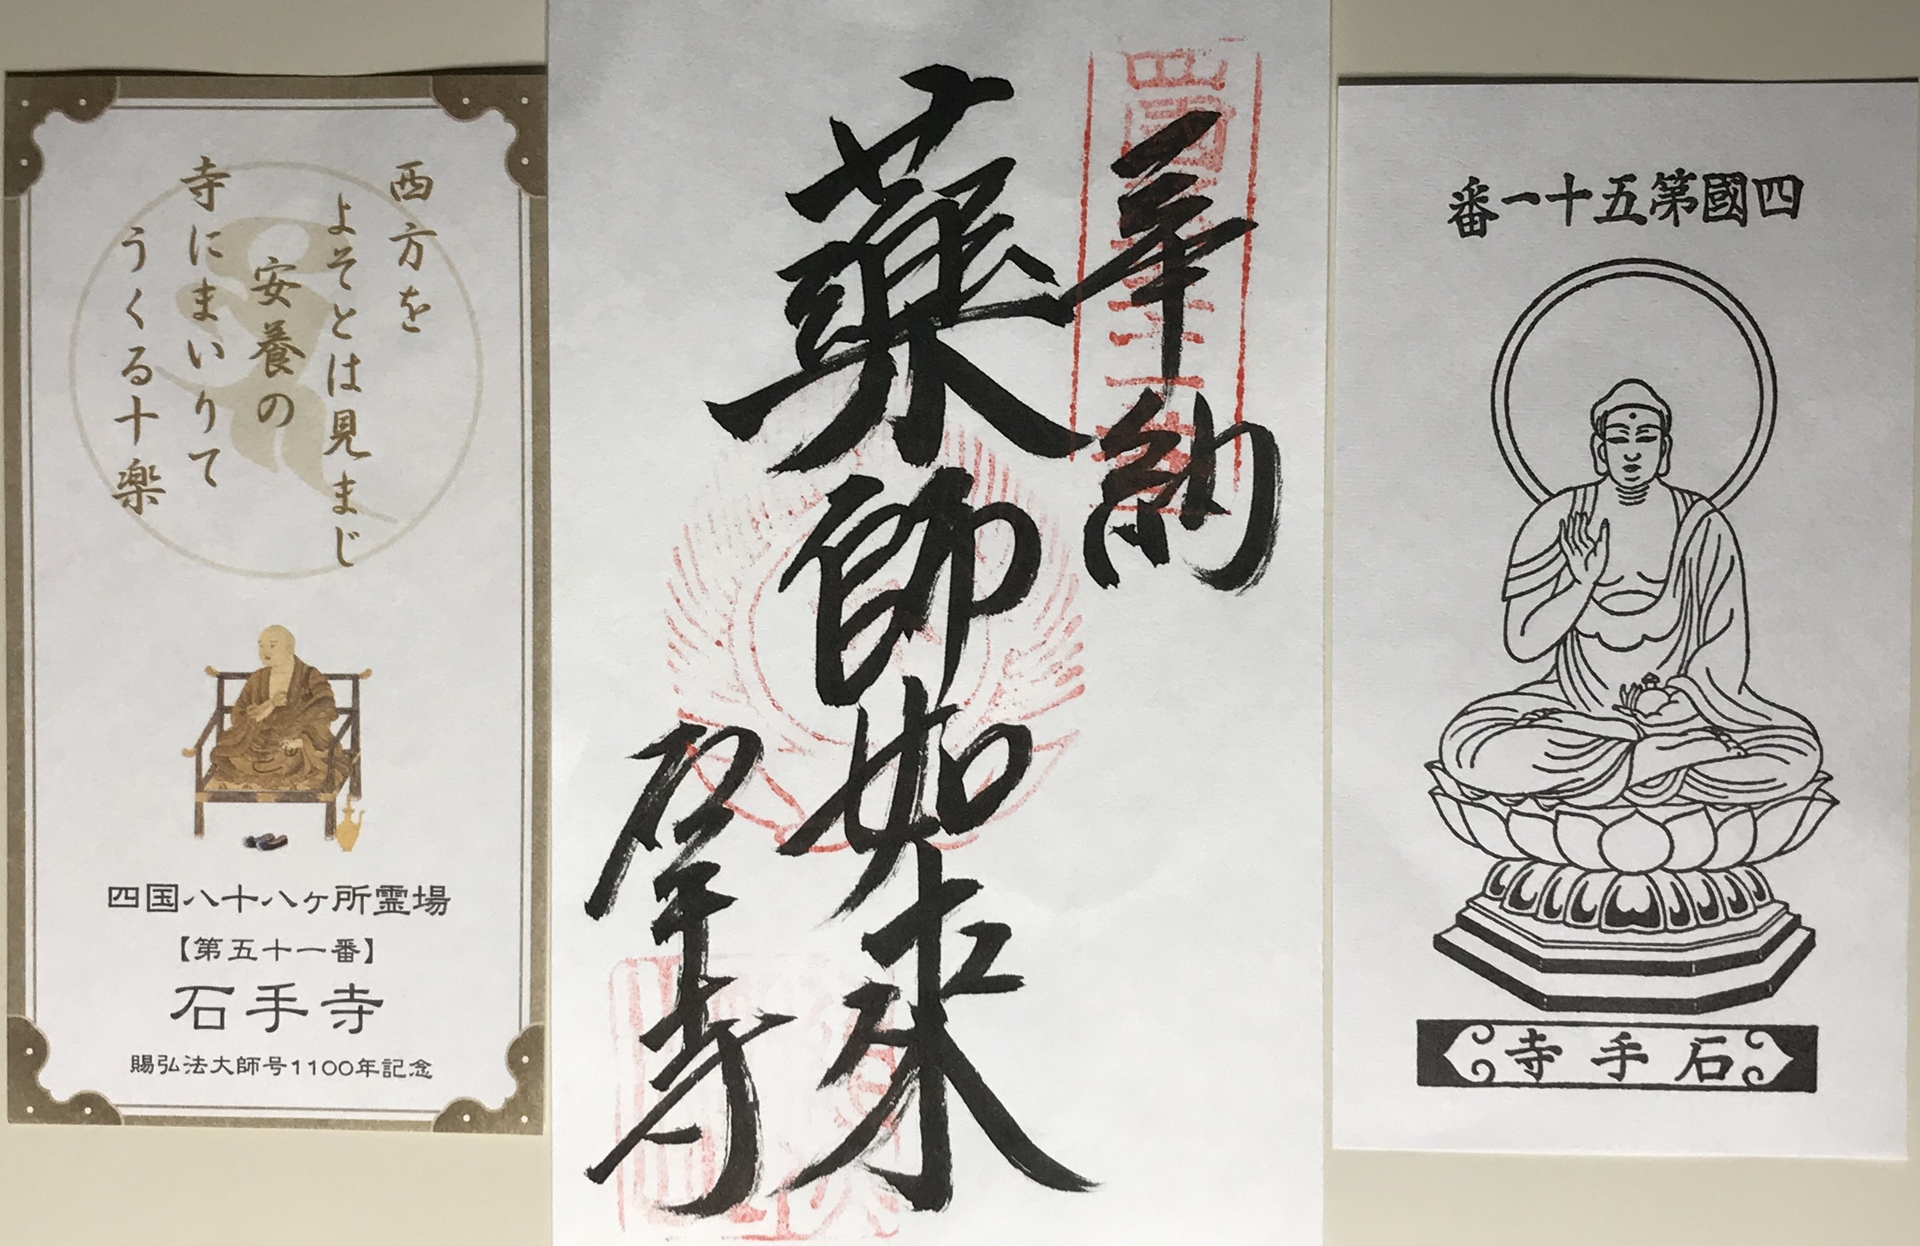 西方を
よそとは見まじ
安養の
寺にまいりて
うくる十楽
四国八十八ヶ所霊場
【第五十一番】
石手寺
賜弘法大師号1100年記念
奉納
薬師如来
石手寺
四國第五十一番
石手寺